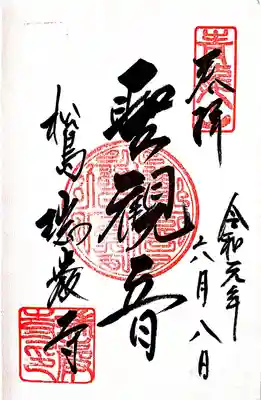 奉拝
令和元年
六月八日
聖観音
松島 瑞巌寺